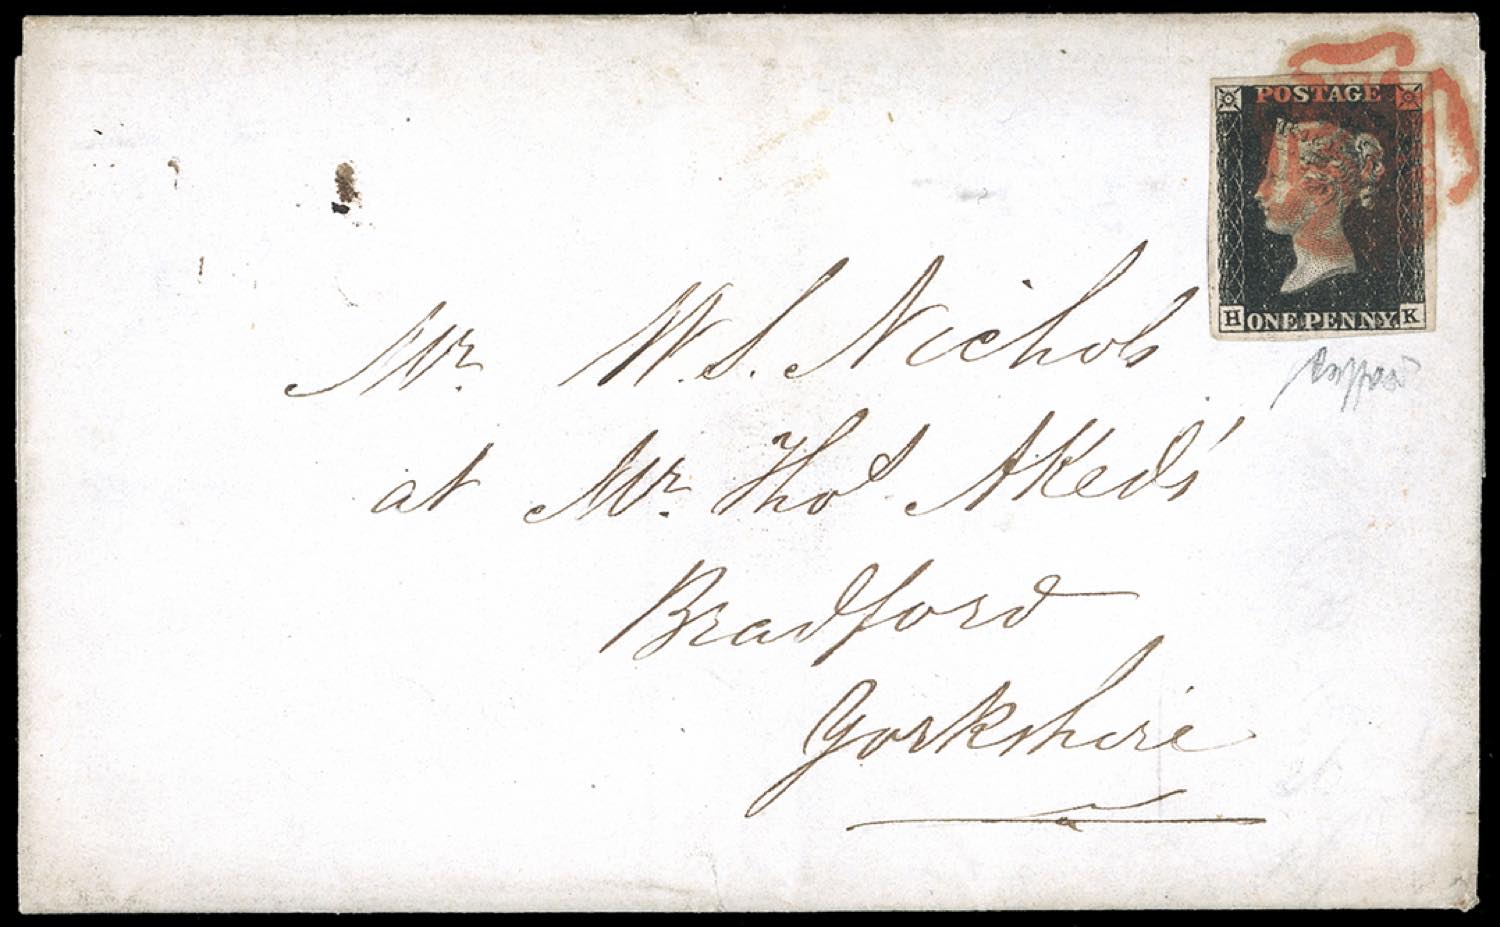 POSTAGE
H ONE PENNY. K
Mr. W. S. Nichols
at Mr. Thos. Aked's
Bradford
Yorkshire